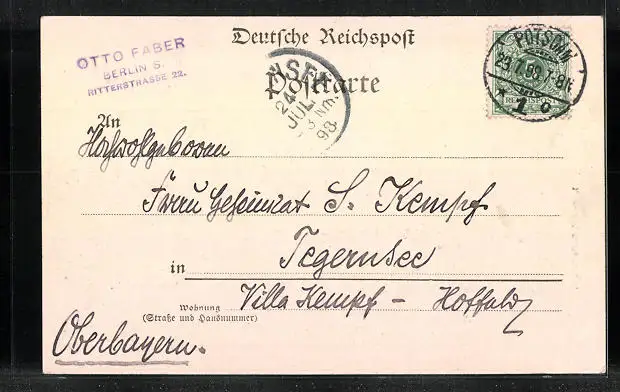 Deutsche Reichspost
Postkarte
OTTO FABER
BERLIN S.
RITTERSTRASSE 22.
NSEE
24
JUL.
3 Nm.
98.
POTSDAM
23.7.98. 7-8N.
* 1 c
REICHSPOST
An
Hochwolgeboren
Herrn Geheimrat S. Kempf
in Tegernsee
Wohnung
(Straße und Hausnummer)
Villa Kempf –
Oberbayern.